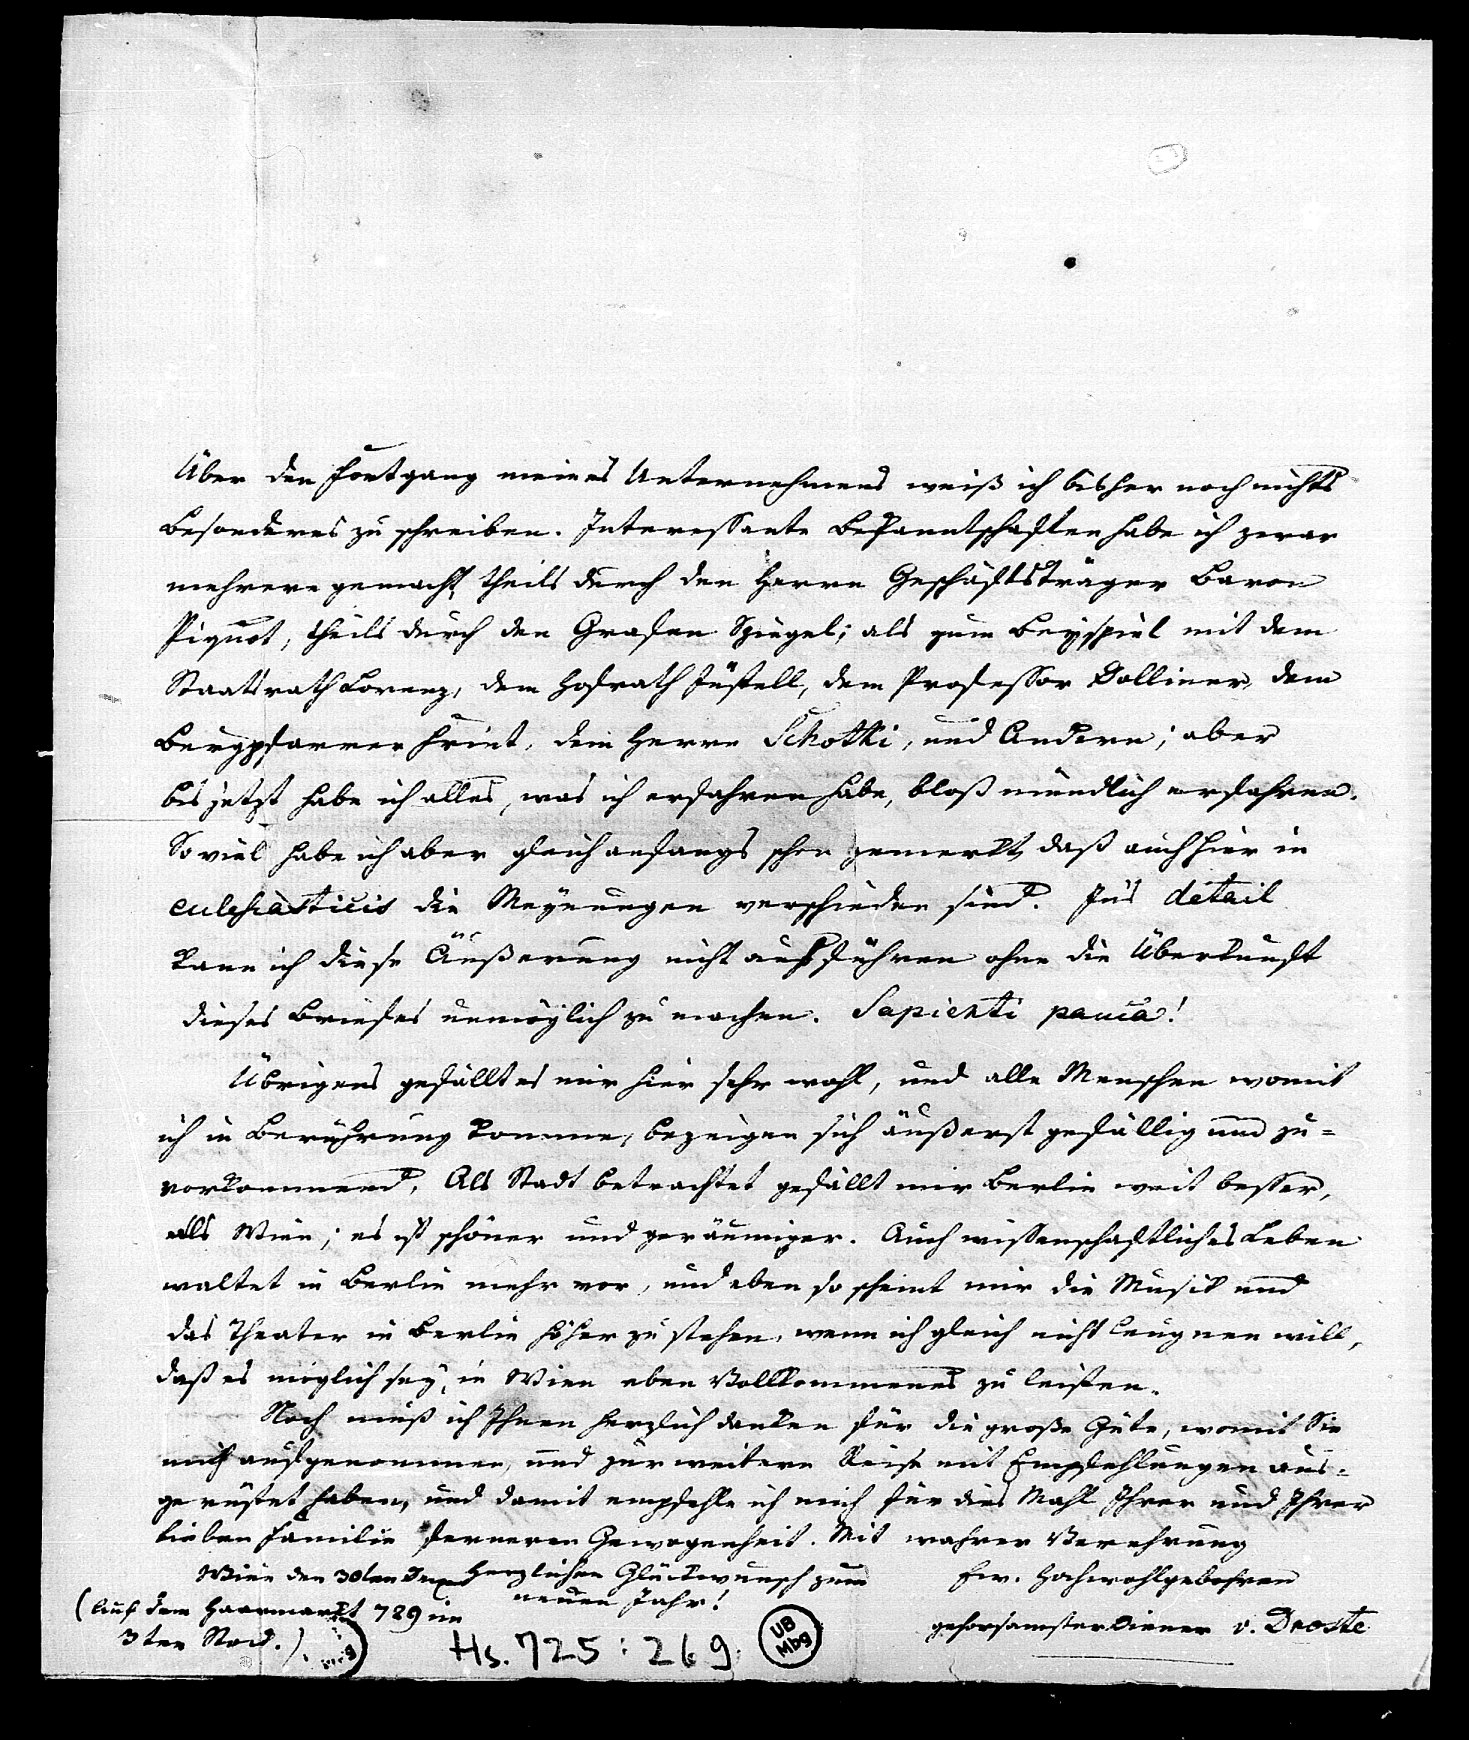 Über den Fortgang meines Unternehmens weiß ich bisher noch nichts
Besonderes zu schreiben. Interessante Bekanntschaften habe ich zwar
mehrere gemacht, theils durch den Herrn Geschäftsträger Baron
Piquot, theils durch den Grafen Spiegel; als zum Beyspiel mit dem
Staatsrath Lorenz, dem Hofrath Jüstell, dem Professor Dolliner, dem
Burgpfarrer Frint, dem Herrn Schotki, und Andern; aber
bis jetzt habe ich alles, was ich erfahren habe, bloß mündlich erfahren.
So viel habe ich aber gleich anfangs schon gemerkt, daß auch hier in
eclesiasticis die Meynungen verschieden sind. Ins détail
kann ich diese Äußerung nicht ausführen ohne die Überkunft
dieses Briefes unmöglich zu machen. Sapienti pauca!
Übrigens gefällt es mir hier sehr wohl, und alle Menschen womit
ich in Berührung komme, bezeigen sich äußerst gefällig und zu=
vorkommend. Als Stadt betrachtet gefällt mir Berlin weit besser,
als Wien; es ist schöner und geräumiger. Auch wissenschaftliches Leben
waltet in Berlin mehr vor, und eben so scheint mir die Musik und
das Theater in Berlin höher zu stehen, wenn ich gleich nicht leugnen will,
daß es möglich sey, in Wien eben Vollkommenes zu leisten.
Noch muß ich Ihnen herzlich danken für die große Güte, womit Sie
mich aufgenommen, und zur weitern Reise mit Empfehlungen aus=
gerüstet haben, und damit empfehle ich mich für dies Mahl Ihrer und Ihrer
lieben Familie ferneren Gewogenheit. Mit wahrer Verehrung
Wien den 30ten Dez Herzlichen Glückwunsch zum Ew. Hochwohlgebohren
(Auf dem Haarmarkt 729 im neuen Jahr!
3ten Stock.) gehorsamster Diener v. Droste
Hs. 725:269
UB
Mbg